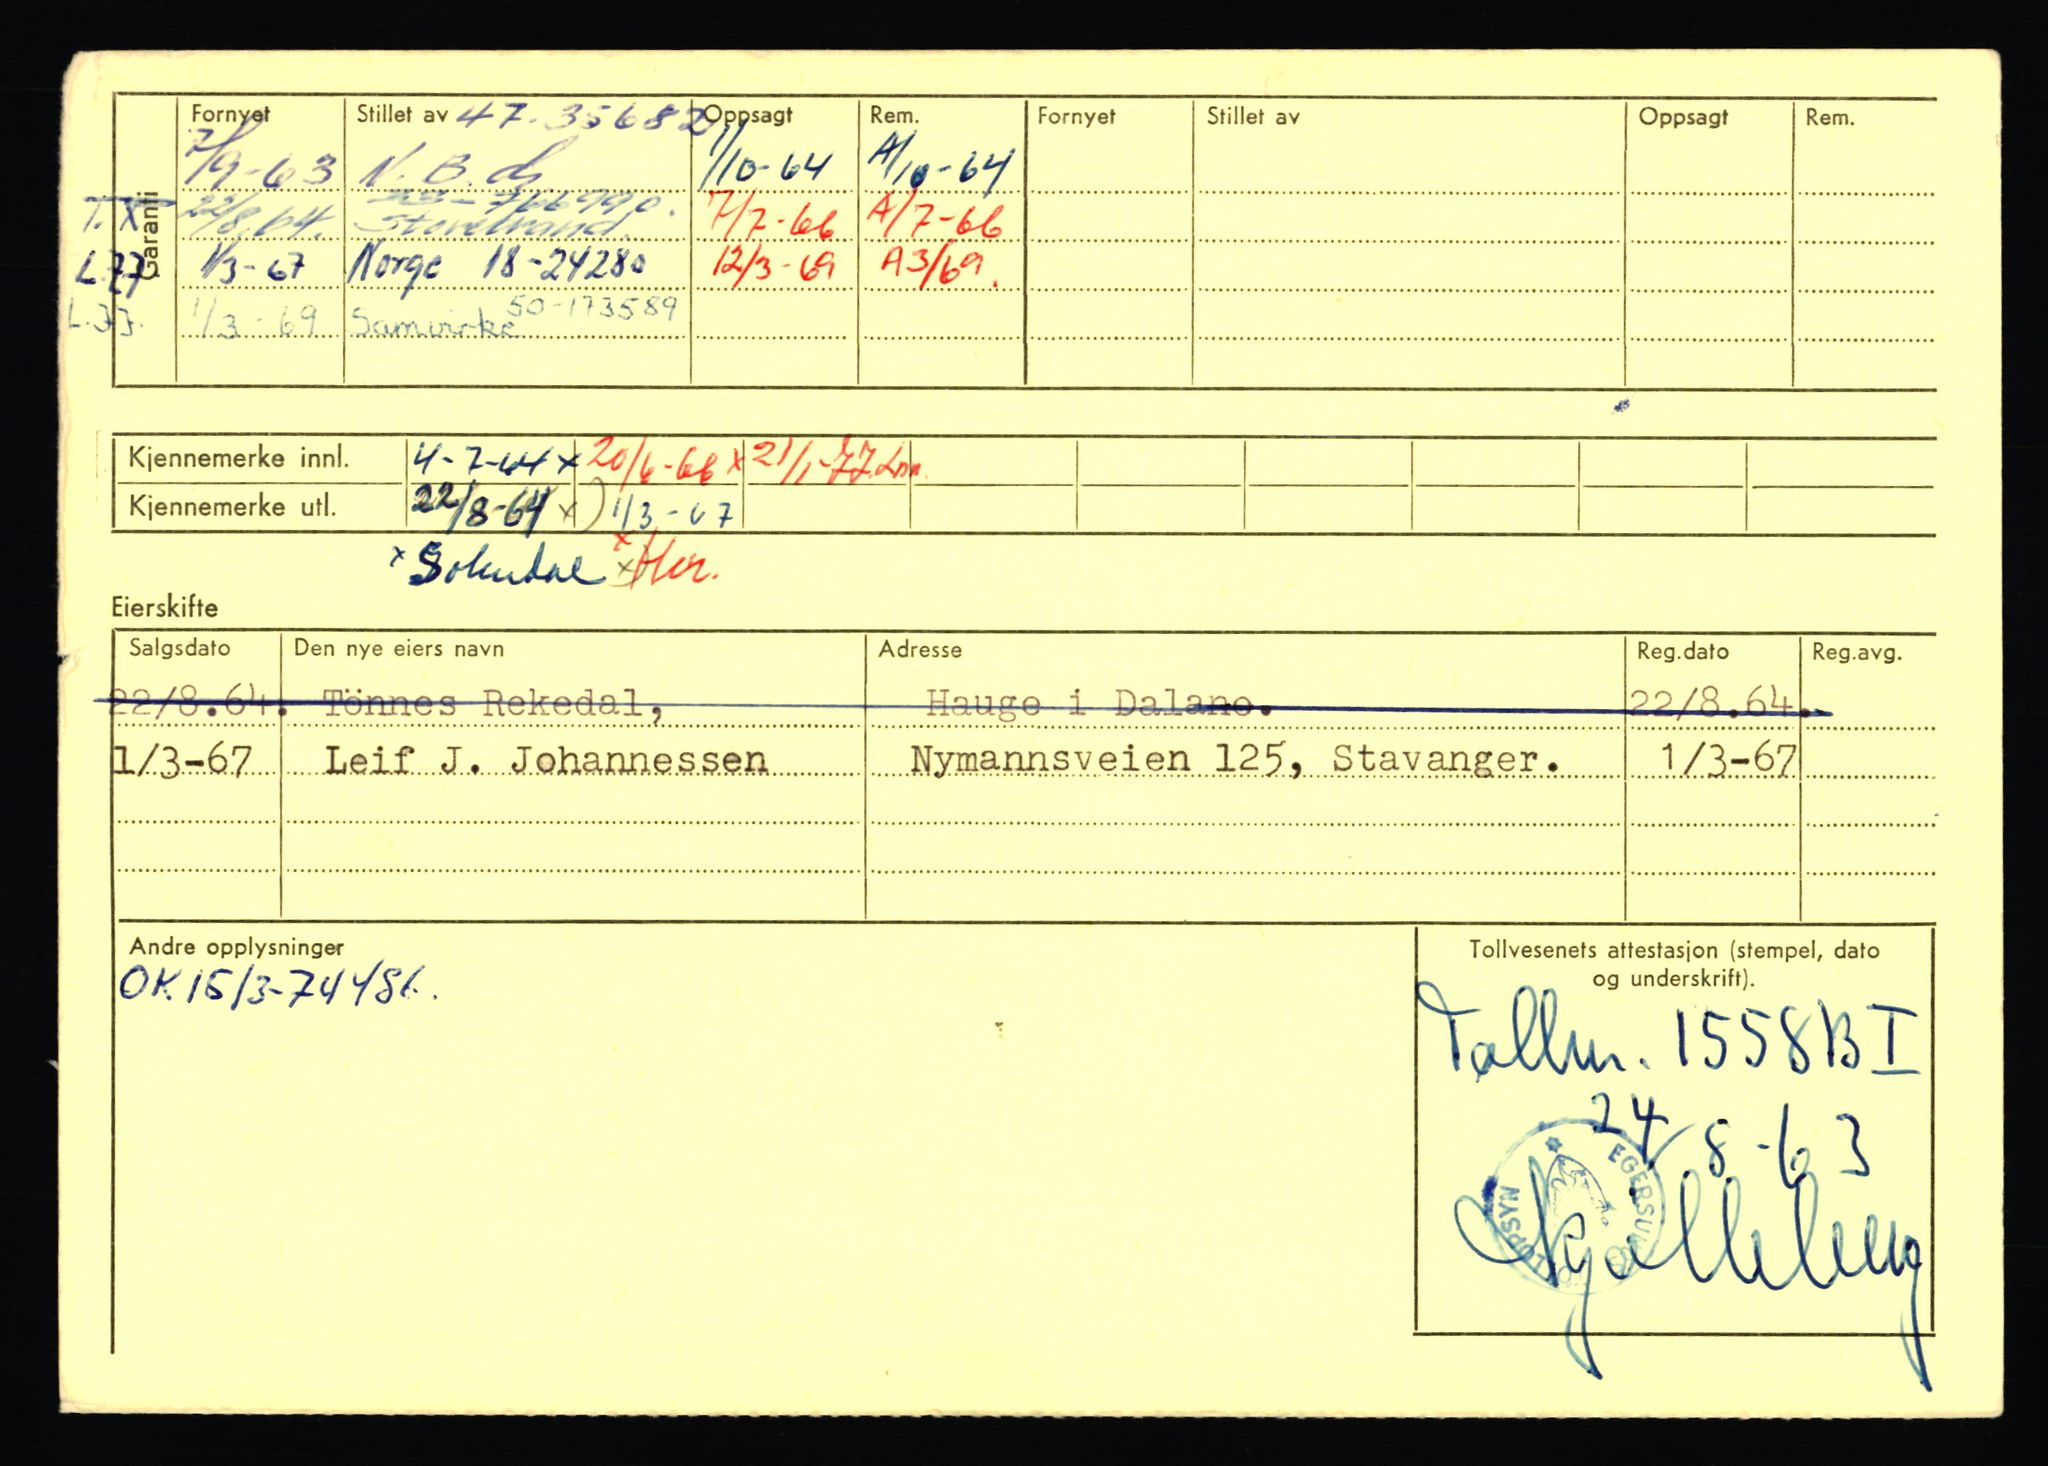 Garanti
Fornyet Stillet av 47-35682 Oppsagt Rem. Fornyet Stillet av Oppsagt Rem.
7/9-63 N.B. 1/10-64 A/10-64
22/8.64. Storebrand. 7/7-66 A/7-66
1/3-67 Norge 18-24280 12/3-69 A3/69.
1/3-69 Samvirke 50-173589
Kjennemerke innl. 4-7-64 x 20/6-66 x 21/1-77
Kjennemerke utl. 22/8-64 x) 1/3-67
x Sokndal x Her.
Eierskifte
Salgsdato Den nye eiers navn Adresse Reg.dato Reg.avg.
22/8.64. Tönnes Rekedal, Hauge i Dalane. 22/8.64.
1/3-67 Leif J. Johannessen Nymannsveien 125, Stavanger. 1/3-67
Andre opplysninger
OK 15/3-74
Tollvesenets attestasjon (stempel, dato
og underskrift).
Tollnr. 1558 B I
24/8-63
EGERSUND